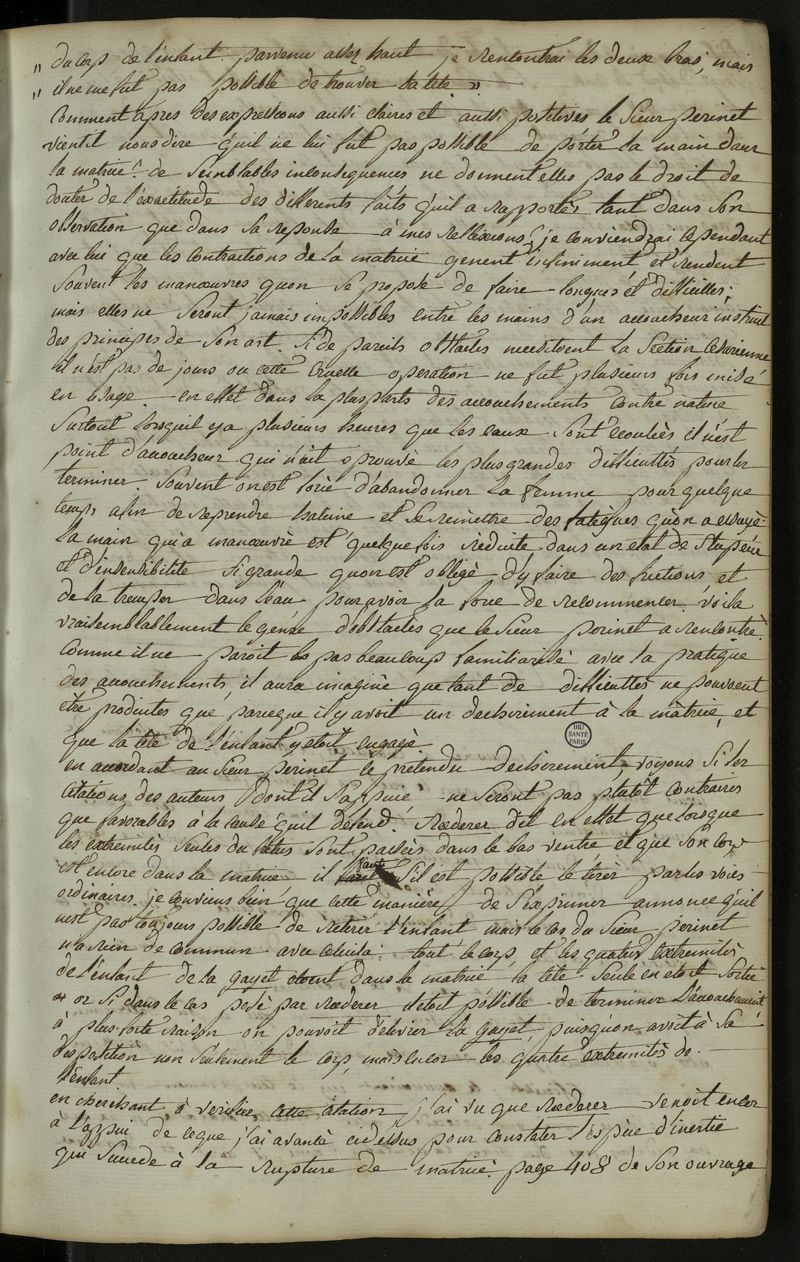 " du corps de l'enfant. parvenu assez haut je rencontrai les deux bras, mais
" il ne me fut pas possible de trouver la tete. "
Comment apres des expressions aussi claires et aussi positives le Sieur perinet
vientil nous dire qu'il ne lui fut pas possible de porter la main dans
la matrice? de semblables inconsequences ne donnent elles pas le droit de
douter de l'exactitude des differents faits qu'il a rapportés tant dans son
observation que dans sa reponse à mes reflexions? je conviendrai cependant
avec lui que les contractions de la matrice genent infiniment et rendent
souvent les manœuvres quon se propose de faire longues et difficiles;
mais elles ne seront jamais impossibles entre les mains d'un accoucheur instruit
des principes de son art. Si de pareils obstacles necessitoient la Section Cesarienne
il n'est pas de jours ou cette cruelle operation ne fut plusieurs fois mise
en usage. en effet dans la plusparts des accouchements contre nature
surtout lorsquil y a plusieurs heures que les eaux sont ecoulées il n'est
point d'accoucheur qui n'ait eprouvé les plus grandes difficultés pour les
terminer. Souvent on est forcé d'abandonner la femme pour quelque
temps afin de reprendre haleine et se remettre des fatigues qu'on a essuyé.
la main qui a manœuvré est quelque fois reduite dans un etat de stupeur
et d'insensibilite si grande quon est obligé d'y faire des frictions et
de la tremper dans l'eau pour avoir la force de recommencer. voila
vraisemblablement le genre d'obstacles que le Sieur perinet a rencontré.
Comme il ne paroit pas beaucoup familiarisé avec la pratique
des accouchements, il aura imaginé que tant de difficultés ne pouvoient
être produites que parceque il y avoit un dechirement à la matrice, et
que la tête de l'enfant y etoit engagé.
en accordant au Sieur perinet le pretendu dechirement, voyons si les
citations des auteurs dont il s'appuie ne seront pas plutôt contraires
que favorables à la cause qu'il defend. Rœderer dit en effet que lorsque
les extremités seules du fœtus sont passées dans le bas ventre et que son corps
est encore dans la matrice il faut s'il est possible le tirer par les voies
ordinaires. je conviens bien que cette maniere de s'exprimer annonce qu'il
n'est pas toujours possible de retirer l'enfant mais le cas du Sieur perinet
n'a rien de commun avec celui la: tout le corps et les quatre extremités
de l'enfant de la gayet etoient dans la matrice la tête seule en etoit sortie
or si dans le cas posé par Rœderer il etoit possible de terminer l'accouchement
à plus forte raison on pouvoit delivrer la gayet, puisquon avoit à sa
disposition non seulement le corps, mais encor les quatre extremités de
l'enfant
en cherchant à verifier cette citation j'ai vu que Rœderer venoit encor
à l'appui de ce que j'ai avancé cidessus pour constater l'espece d'inertie
qui succede à la rupture de matrice. page 408 de son ouvrage
BIU
SANTÉ
PARIS